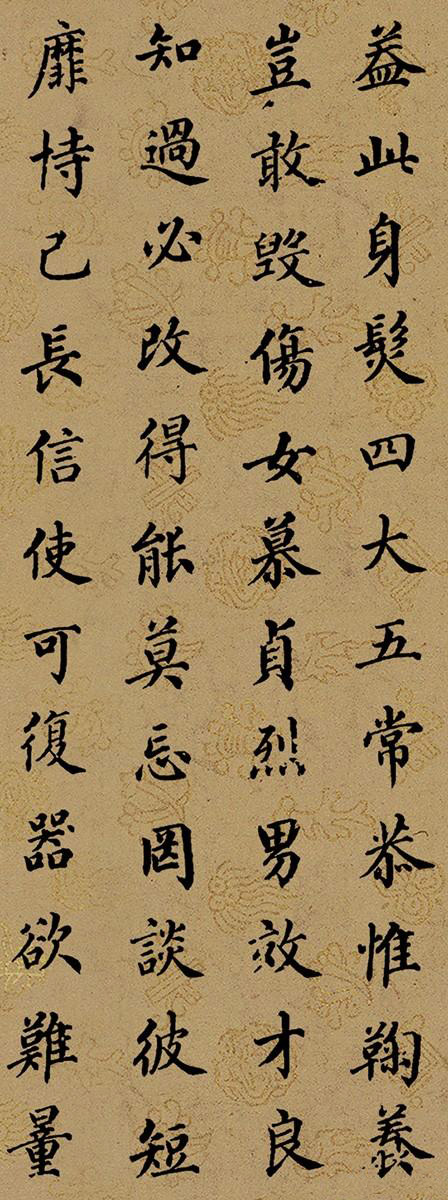 葢此身髮四大五常恭惟鞠養
豈敢毀傷女慕貞烈男效才良
知過必改得能莫忘罔談彼短
靡恃己長信使可復器欲難量